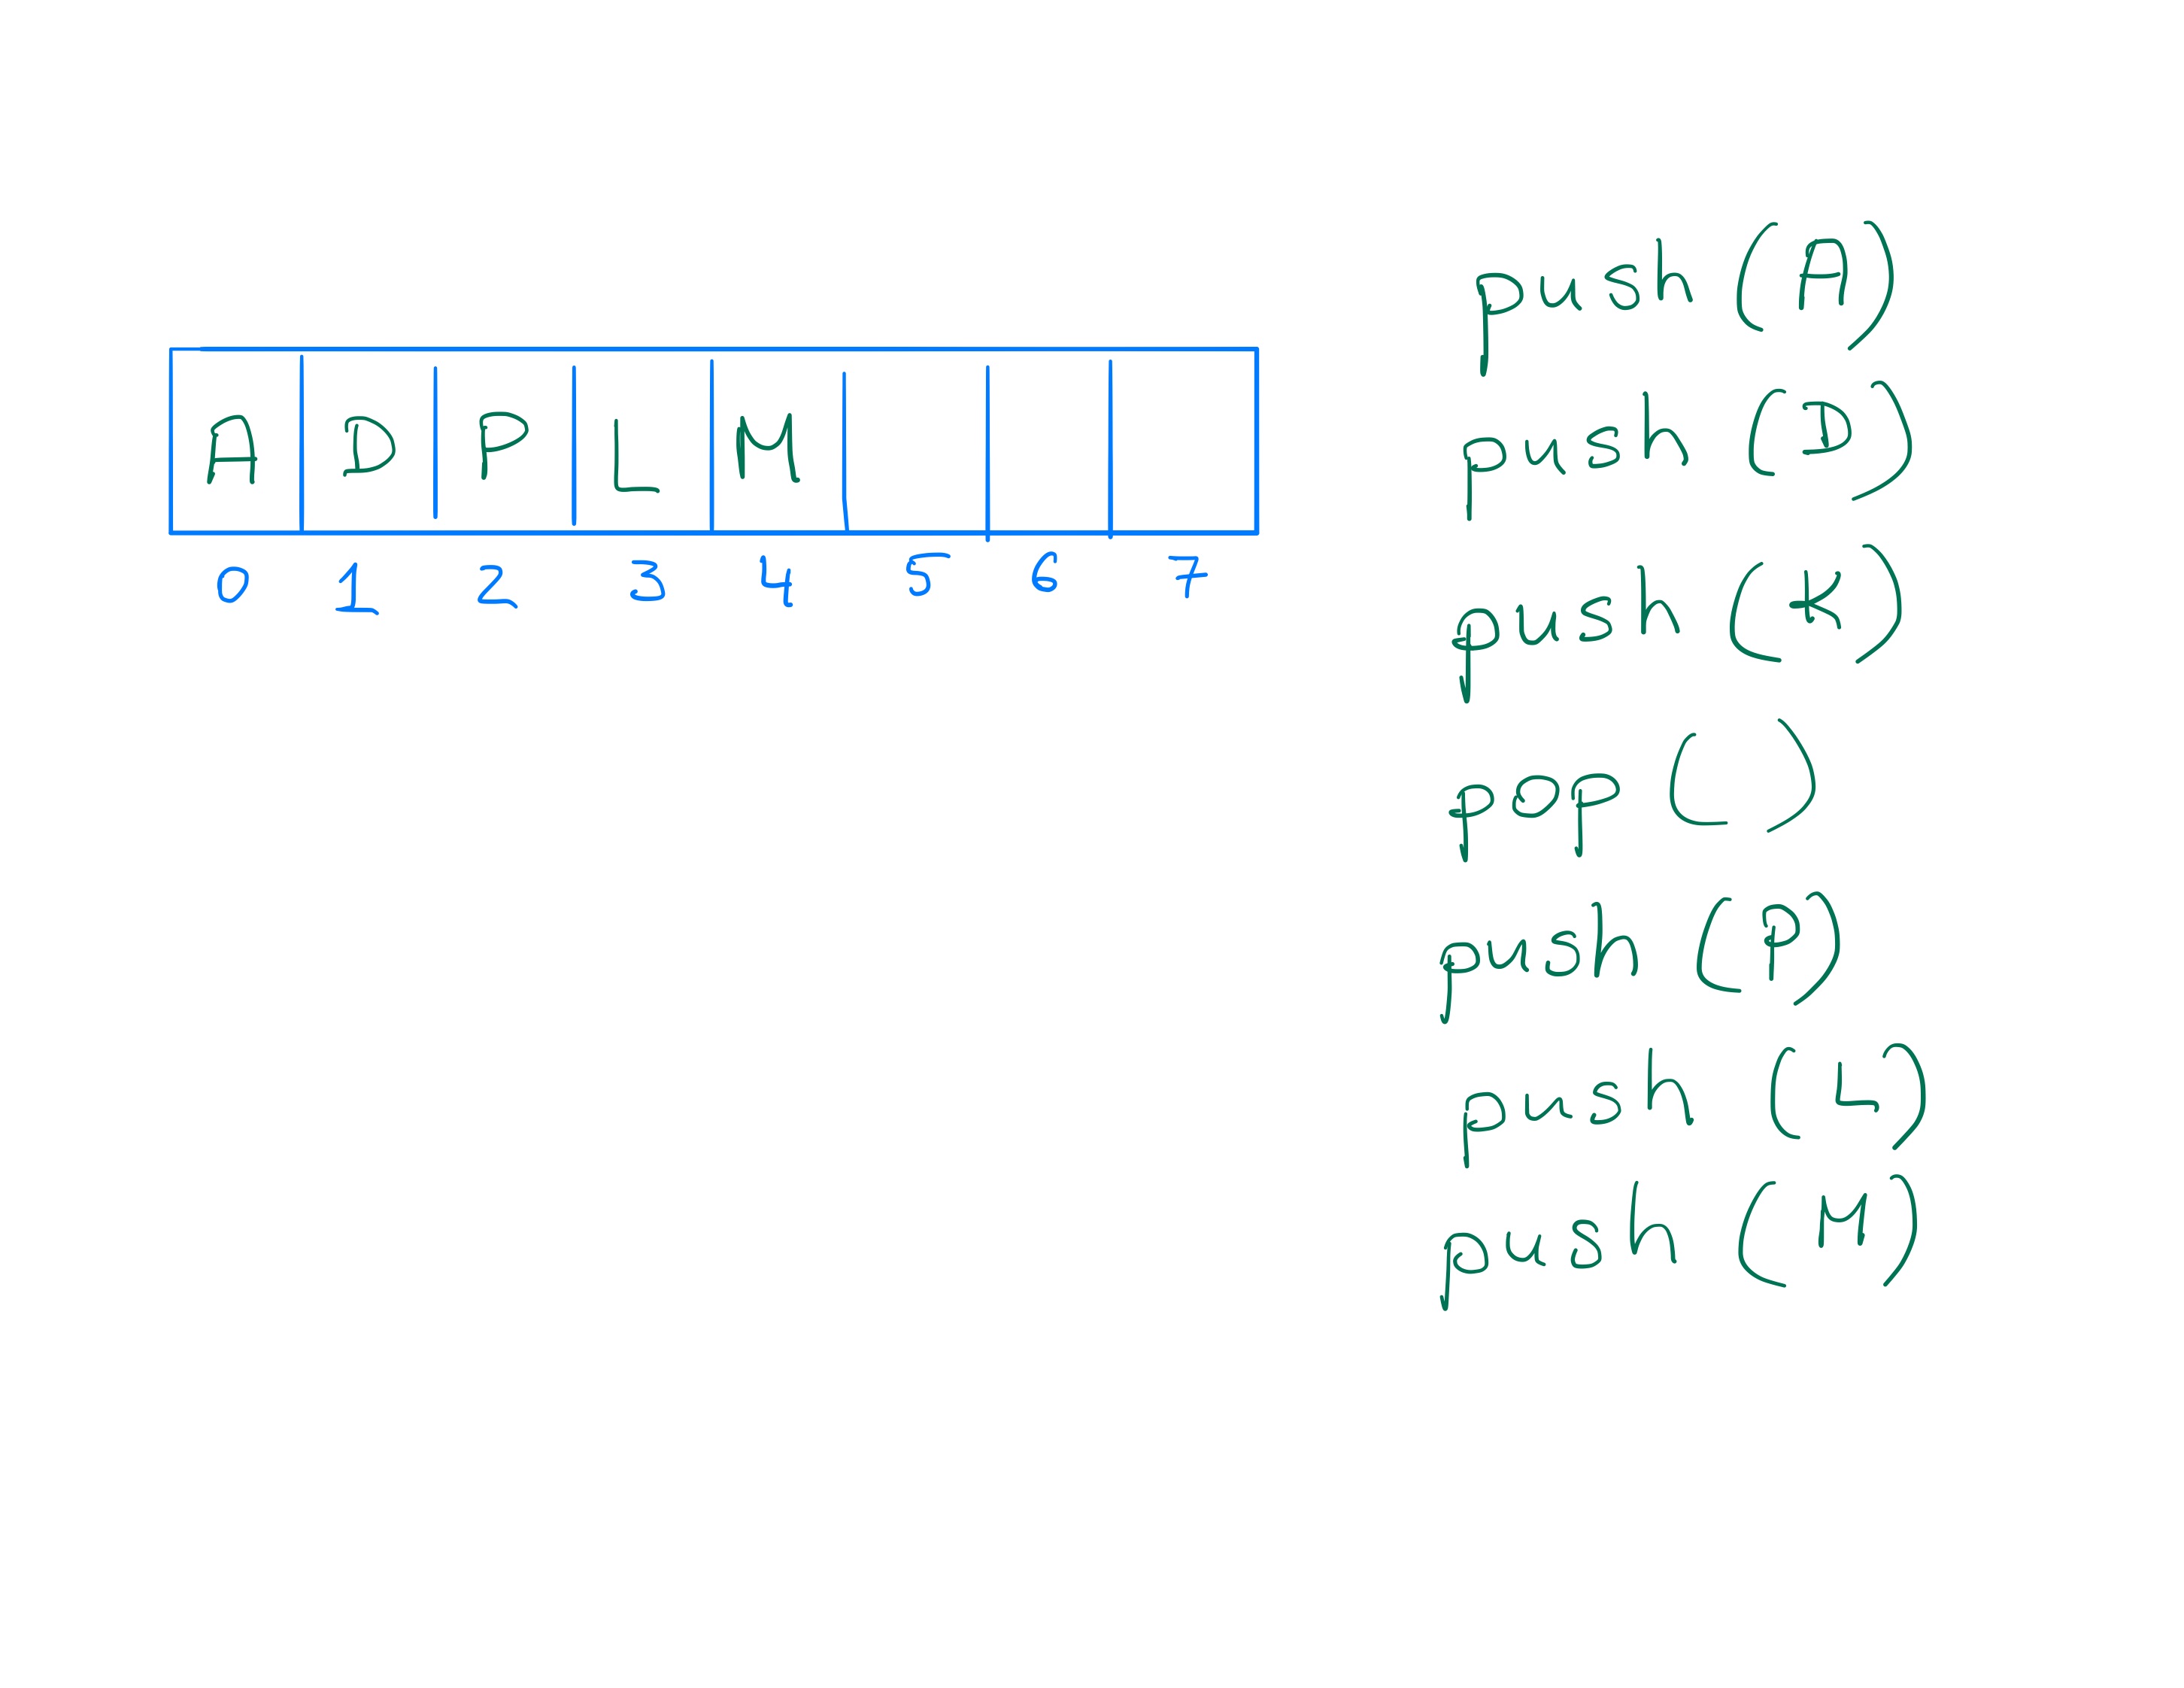 A D P L M
0 1 2 3 4 5 6 7
push (A)
push (D)
push (K)
pop ( )
push (P)
push (L)
push (M)